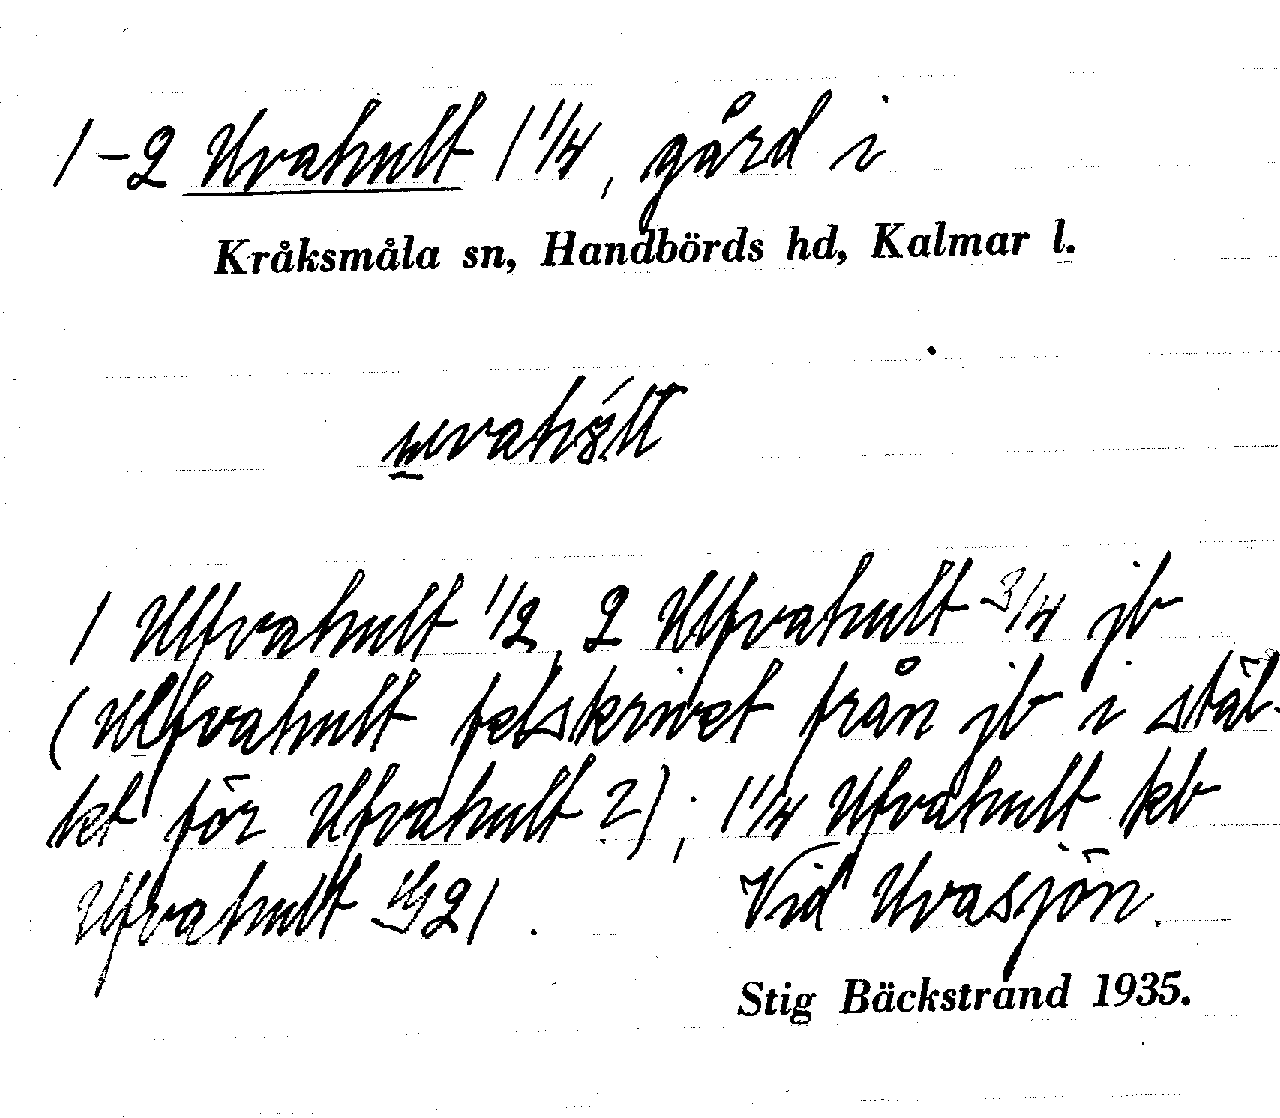 1–2 Uvahult 1 1/4, gård i
Kråksmåla sn, Handbörds hd, Kalmar l.
1 Ulfvahult 1/2, 2 Ulfvahult 3/4 jb
(Ulfvahult felskrivet från jb i stäl-
let för Ufvahult 2); 1 1/4 Ufvahult kb
Ufvahult 21. Vid Uvasjön.
Stig Bäckstrand 1935.